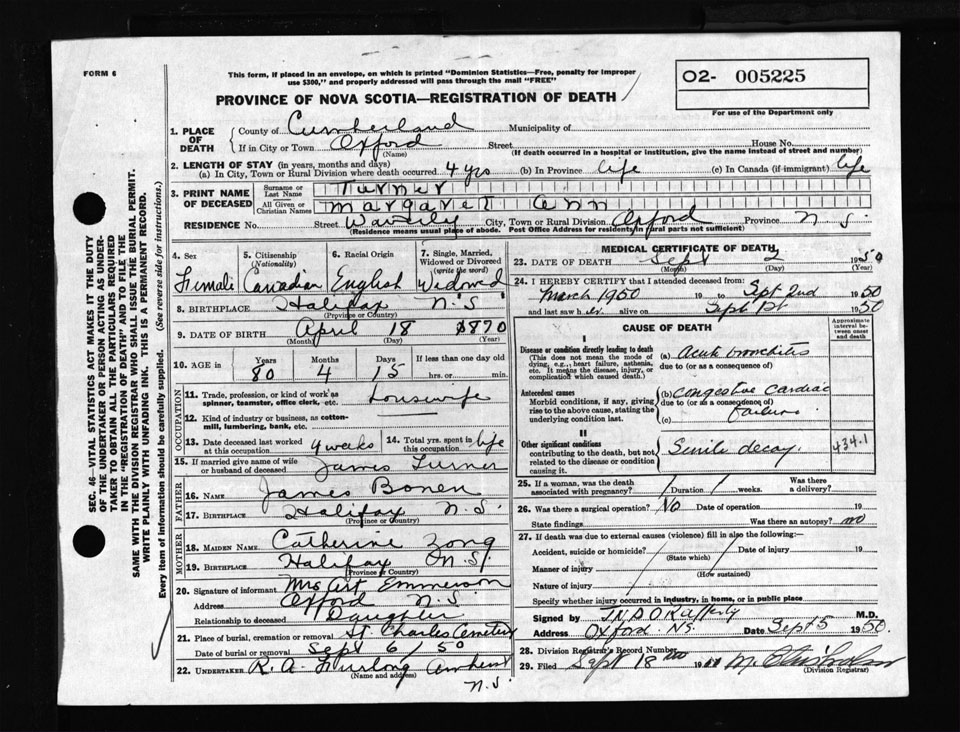 FORM 6
This form, if placed in an envelope, on which is printed "Dominion Statistics—Free, penalty for improper
use $300," and properly addressed will pass through the mail "FREE"
O2- 005225
For use of the Department only
PROVINCE OF NOVA SCOTIA—REGISTRATION OF DEATH
1. PLACE OF DEATH
County of Cumberland Municipality of
If in City or Town Oxford Street House No.
(Name) (If death occurred in a hospital or institution, give the name instead of street and number)
2. LENGTH OF STAY (in years, months and days)
(a) In City, Town or Rural Division where death occurred 4 yrs (b) In Province life (c) In Canada (if immigrant) life
3. PRINT NAME OF DECEASED
Surname or Last Name Turner
All Given or Christian Names Margaret Ann
RESIDENCE No. Street Waverly City, Town or Rural Division Oxford Province N.S.
(Residence means usual place of abode. Post Office Address for residents in rural parts not sufficient)
4. Sex 5. Citizenship (Nationality) 6. Racial Origin 7. Single, Married, Widowed or Divorced (write the word)
Female Canadian English Widowed
8. BIRTHPLACE Halifax N.S.
(Province or Country)
9. DATE OF BIRTH April 18 1870
(Month) (Day) (Year)
10. AGE in Years Months Days If less than one day old
80 4 15 hrs. or min.
OCCUPATION
11. Trade, profession, or kind of work as spinner, teamster, office clerk, etc. Housewife
12. Kind of industry or business, as cotton-mill, lumbering, bank, etc.
13. Date deceased last worked at this occupation 4 weeks 14. Total yrs. spent in this occupation life
15. If married give name of wife or husband of deceased James Turner
FATHER
16. Name James Bonen
17. Birthplace Halifax N.S.
(Province or Country)
MOTHER
18. Maiden Name Catherine Zong
19. Birthplace Halifax N.S.
(Province or Country)
20. Signature of informant Mrs Art Emmerson
Address Oxford N.S.
Relationship to deceased Daughter
21. Place of burial, cremation or removal St Charles Cemetery
Date of burial or removal Sept 6/50
22. UNDERTAKER R. A. Furlong Amherst
(Name and address) N.S.
MEDICAL CERTIFICATE OF DEATH
23. DATE OF DEATH Sept 2 1950
(Month) (Day) (Year)
24. I HEREBY CERTIFY that I attended deceased from:
March 1950 19 to Sept 2nd 1950
and last saw her alive on Sept 1st 1950
CAUSE OF DEATH
Approximate interval between onset and death
I
Disease or condition directly leading to death (a) Acute bronchitis
(This does not mean the mode of dying, e.g., heart failure, asthenia, etc. It means the disease, injury, or complication which caused death.)
due to (or as a consequence of)
Antecedent causes (b) Congestive Cardiac
Morbid conditions, if any, giving rise to the above cause, stating the underlying condition last.
due to (or as a consequence of) failure
(c)
II
Other significant conditions
contributing to the death, but not related to the disease or condition causing it.
Senile decay. 434.1
25. If a woman, was the death associated with pregnancy? / Duration / weeks. Was there a delivery?
26. Was there a surgical operation? No Date of operation 19
State findings Was there an autopsy? no
27. If death was due to external causes (violence) fill in also the following:
Accident, suicide or homicide? Date of injury 19
(State which)
Manner of injury
(How sustained)
Nature of injury
Specify whether injury occurred in industry, in home, or in public place
Signed by O'Rafferty M.D.
Address Oxford N.S. Date Sept 5 1950.
28. Division Registrar's Record Number
29. Filed Sept 18 19
(Division Registrar)
SEC. 46—VITAL STATISTICS ACT MAKES IT THE DUTY
OF THE UNDERTAKER OR PERSON ACTING AS UNDER-
TAKER TO OBTAIN ALL THE PARTICULARS REQUIRED
IN THE "REGISTRATION OF DEATH" AND TO FILE THE
SAME WITH THE DIVISION REGISTRAR WHO SHALL ISSUE THE BURIAL PERMIT.
WRITE PLAINLY WITH UNFADING INK. THIS IS A PERMANENT RECORD.
Every item of information should be carefully supplied. (See reverse side for instructions.)